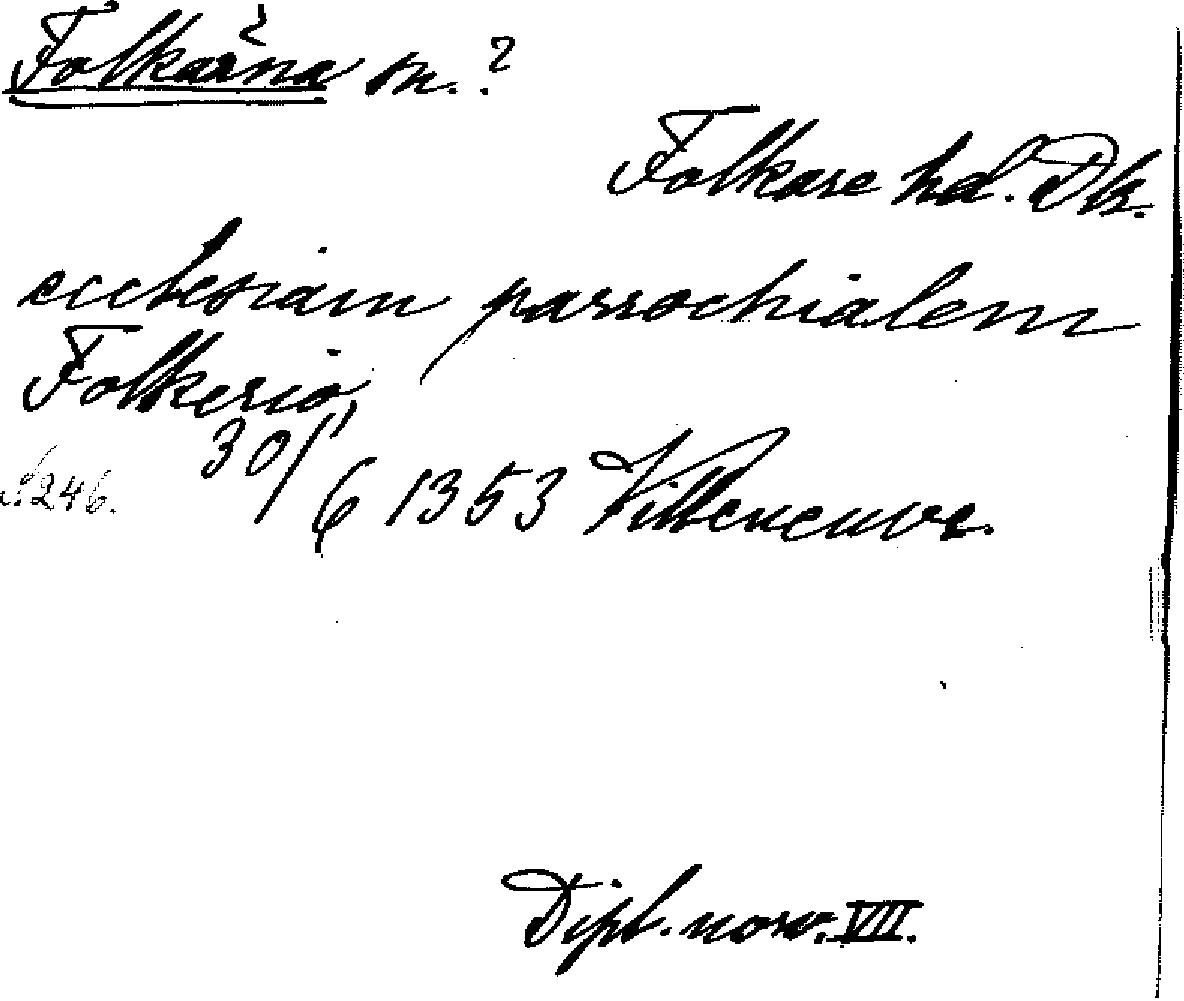 Folkärna sn.?
Folkare hd. Dk.
ecclesiam parrochialem
Folkerio,
S. 246. 30/6 1353 Villeneuve.
Dipl. norv. VII.